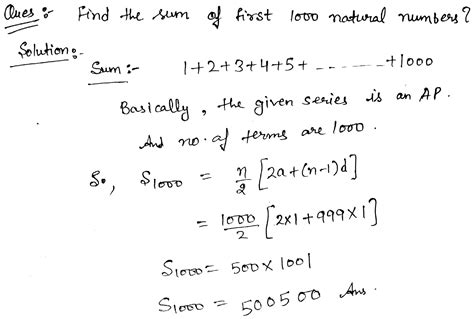 Ques :- Find the sum of first 1000 natural numbers?
Solution :-
Sum :- 1+2+3+4+5+ - - - - - - +1000
Basically, the given series is an AP.
And no. of terms are 1000.
So, S1000 = n/2 [2a+(n-1)d]
= 1000/2 [2x1+999x1]
S1000 = 500x1001
S1000 = 500500 Ans.